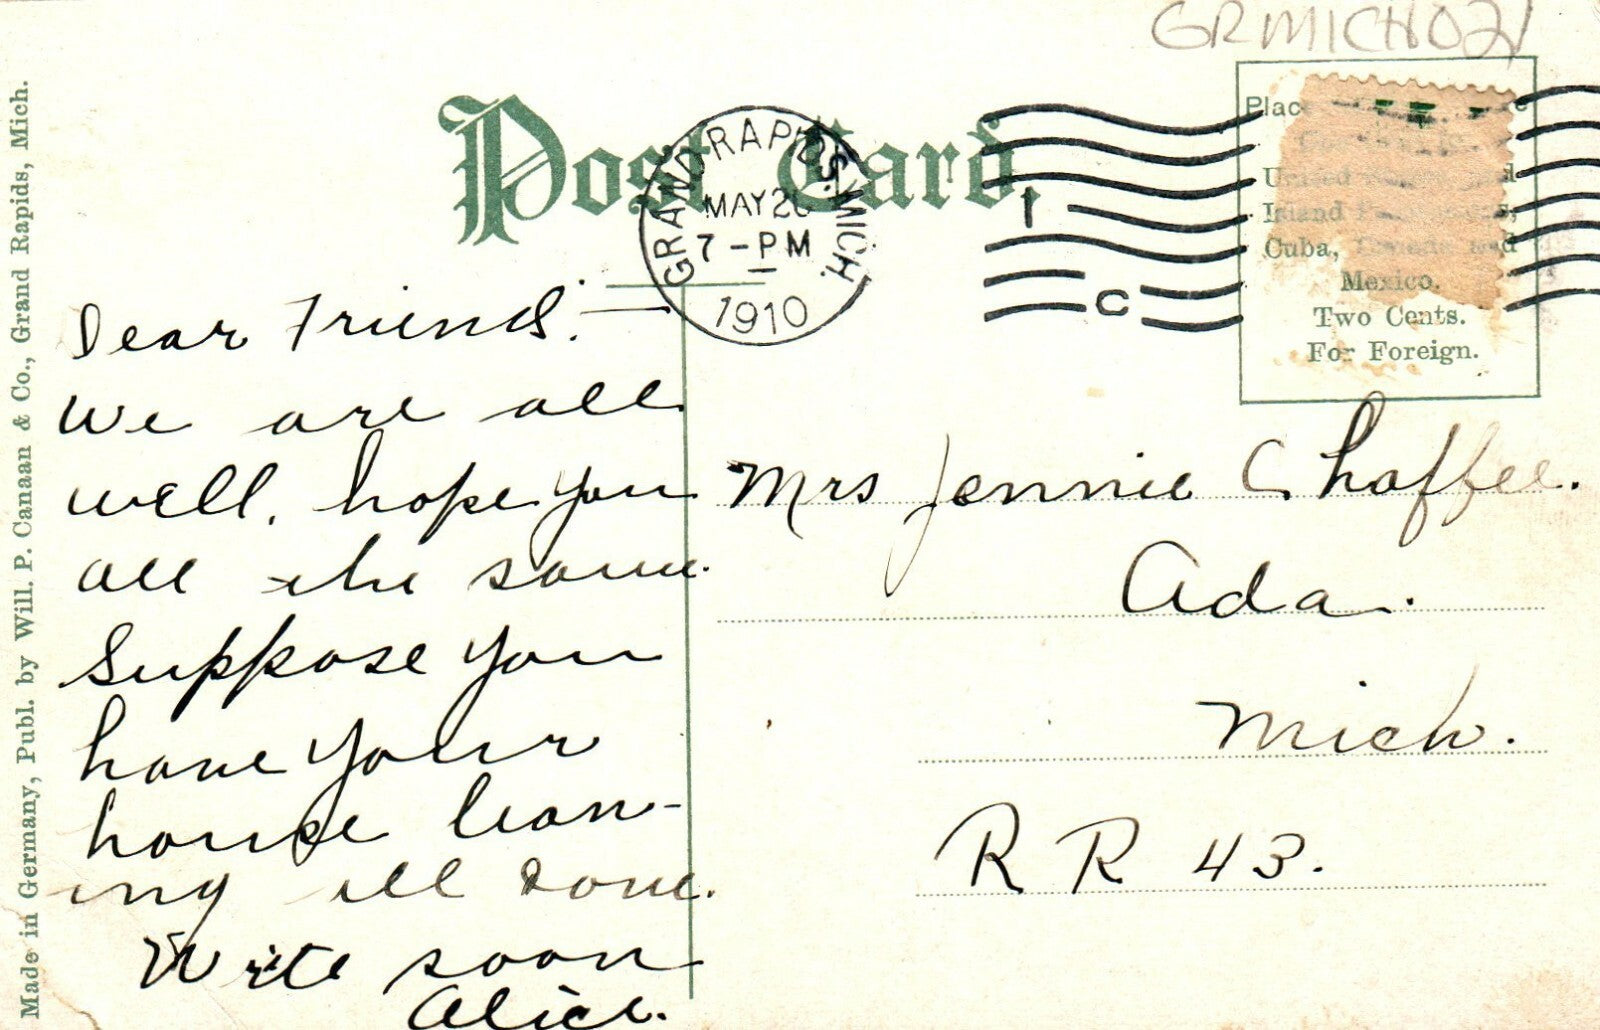 GRMICH021
Post Card.
GRAND RAPIDS. MICH.
MAY 2
7-PM
1910
1
C
Plac
Cuba,
Mexico.
Two Cents.
For Foreign.
Made in Germany, Publ. by Will. P. Canaan & Co., Grand Rapids, Mich.
Dear Friend:—
We are all
well, hope you
all the same.
Suppose you
have your
house lean-
ing all done.
Write soon
Alice.
Mrs Jennie Chaffee.
Ada.
Mich.
R R 43.